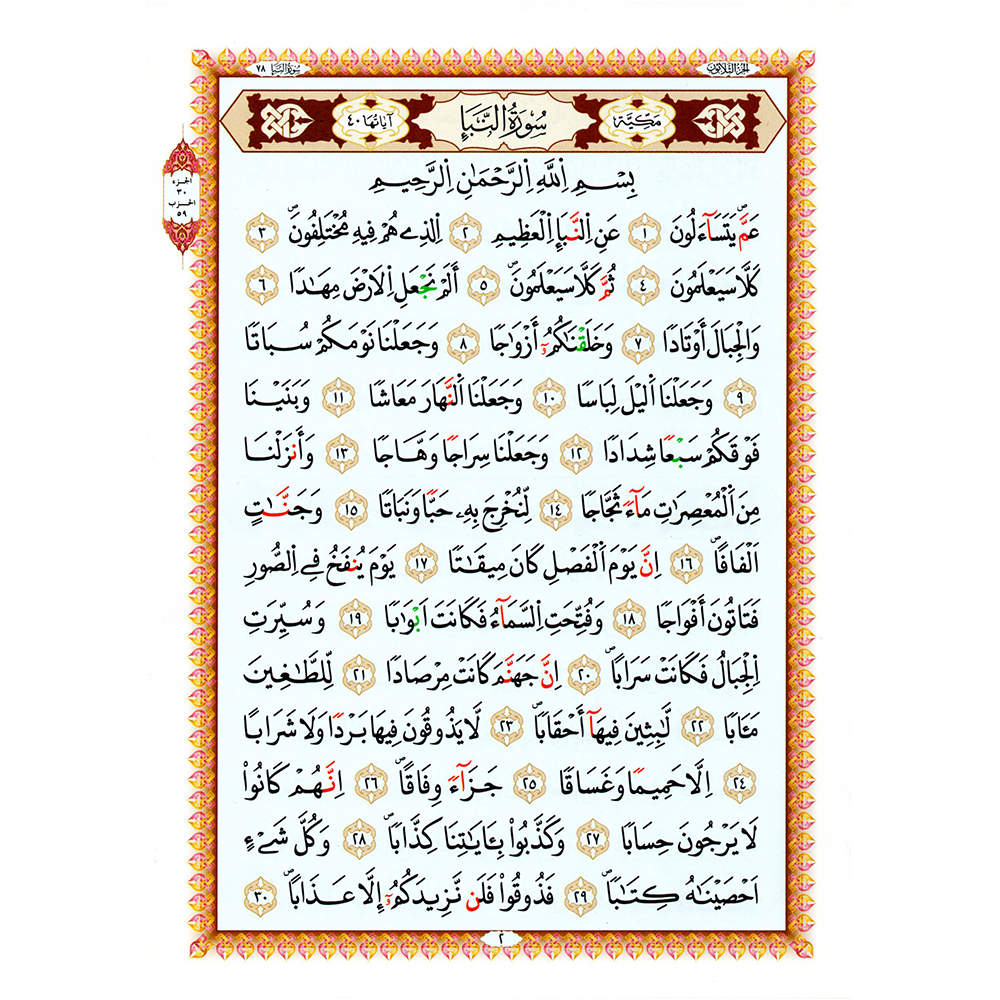 الجزء الثلاثون
سورة النبإ ٧٨
مَكِّيَّة سُورَةُ النَّبَإِ آيَاتُهَا ٤٠
الجزء
٣٠
الحزب
٥٩
بِسْمِ اِ۬للَّهِ اِ۬لرَّحْمَٰنِ اِ۬لرَّحِيمِ
عَمَّ يَتَسَآءَلُونَ ١ عَنِ اِ۬لنَّبَإِ اِ۬لْعَظِيمِ ٢ اِ۬لذِے هُمْ فِيهِ مُخْتَلِفُونَ ٣
كَلَّا سَيَعْلَمُونَ ٤ ثُمَّ كَلَّا سَيَعْلَمُونَ ٥ أَلَمْ نَجْعَلِ اِ۬لَارْضَ مِهَٰدٗا ٦
وَالْجِبَالَ أَوْتَادٗا ٧ وَخَلَقْنَٰكُمُۥٓ أَزْوَٰجٗا ٨ وَجَعَلْنَا نَوْمَكُمْ سُبَاتٗا
٩ وَجَعَلْنَا اَ۬ليْلَ لِبَاسٗا ١٠ وَجَعَلْنَا اَ۬لنَّهَارَ مَعَاشٗا ١١ وَبَنَيْنَا
فَوْقَكُمْ سَبْعٗا شِدَادٗا ١٢ وَجَعَلْنَا سِرَاجٗا وَهَّاجٗا ١٣ وَأَنزَلْنَا
مِنَ اَ۬لْمُعْصِرَٰتِ مَآءٗ ثَجَّاجٗا ١٤ لِّنُخْرِجَ بِهِۦ حَبّٗا وَنَبَاتٗا ١٥ وَجَنَّٰتٍ
اَلْفَافًا ١٦ اِنَّ يَوْمَ اَ۬لْفَصْلِ كَانَ مِيقَٰتٗا ١٧ يَوْمَ يُنفَخُ فِے اِ۬لصُّورِ
فَتَاتُونَ أَفْوَاجٗا ١٨ وَفُتِّحَتِ اِ۬لسَّمَآءُ فَكَانَتَ اَبْوَٰبٗا ١٩ وَسُيِّرَتِ
اِ۬لْجِبَالُ فَكَانَتْ سَرَابًا ٢٠ اِنَّ جَهَنَّمَ كَانَتْ مِرْصَادٗا ٢١ لِّلطَّٰغِينَ
مَـَٔابٗا ٢٢ لَّٰبِثِينَ فِيهَآ أَحْقَابٗا ٢٣ لَّا يَذُوقُونَ فِيهَا بَرْدٗا وَلَا شَرَابًا
٢٤ اِلَّا حَمِيمٗا وَغَسَاقٗا ٢٥ جَزَآءٗ وِفَاقًا ٢٦ اِنَّهُمْ كَانُواْ
لَا يَرْجُونَ حِسَابٗا ٢٧ وَكَذَّبُواْ بِـَٔايَٰتِنَا كِذَّابٗا ٢٨ وَكُلَّ شَےْءٍ
اَحْصَيْنَٰهُ كِتَٰبٗا ٢٩ فَذُوقُواْ فَلَن نَّزِيدَكُمُۥٓ إِلَّا عَذَابًا ٣٠
٢